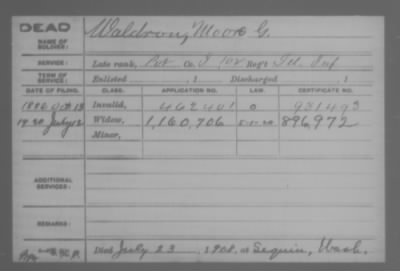 DEAD
NAME OF SOLDIER: Waldron, Moore G.
SERVICE: Late rank, Pvt Co. I, 102 Reg't Ill. Inf
TERM OF SERVICE: Enlisted , 1 Discharged , 1
DATE OF FILING. CLASS. APPLICATION NO. LAW. CERTIFICATE NO.
Oct 13 Invalid, 462401 0 931493
1920 July 12 Widow, 1,160,706 5-1-20 896,972
Minor,
ADDITIONAL SERVICES:
REMARKS:
Died July 23, 1908, at Sequim, Wash.